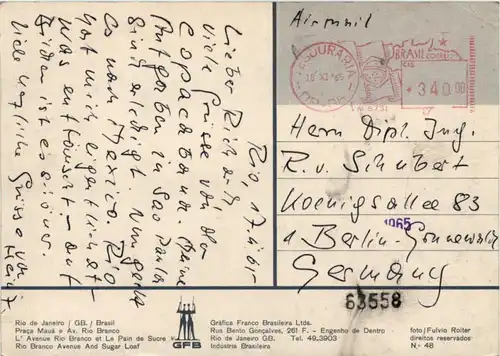 Rio, 17.11.65
Lieber Richard,
viele Grüsse von der
Copacabana. Meine
Aufgaben in Sao Paulo
sind erledigt. Nun geht
es nach Mexico. Rio
hat mich eigentlich et-
was enttäuscht - auf
Bildern ist es schöner.
Viele herzliche Grüsse von
Airmail
BRASIL CORREIO
340,00
Herrn Dipl. Ing.
R. v. Schubert
Koenigsallee 83
1965
1 Berlin-Grunewald
Germany
63558
Rio de Janeiro / GB. / Brasil
Praça Mauá e Av. Rio Branco
L' Avenue Rio Branco et Le Pain de Sucre
Rio Branco Avenue And Sugar Loaf
GFB
Gráfica Franco Brasileira Ltda.
Rua Bento Gonçalves, 261 F. - Engenho de Dentro
Rio de Janeiro GB. Tel. 49.3903
Indústria Brasileira
foto/Fulvio Roiter
direitos reservados
N.º 48